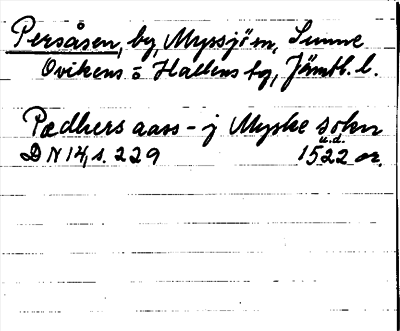 Persåsen, by, Myssjö sn, Sunne
Ovikens o Hallens tg, Jämtl. l.
Pædhers aass - j Myske sokn
u.d.
DN 14, s. 229 1522 or.